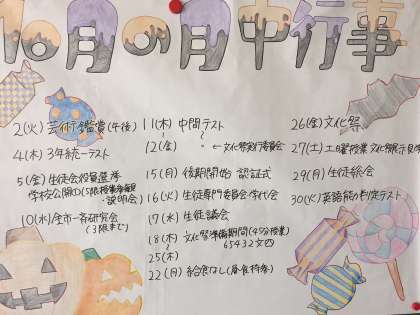 10月の月中行事
2(火) 芸術鑑賞(午後)
4(木) 3年統一テスト
5(金) 生徒会役員選挙
学校公開日(5限授業参観
・説明会)
10(水) 全市一斉研究会
(3限まで)
11(木) 中間テスト
12(金) ← 文化祭実行委員会
15(月) 後期開始 認証式
16(火) 生徒専門委員会・学代会
17(水) 生徒議会
18(木) 文化祭準備期間(45分授業)
65432文四
25(木)
22(月) 給食なし(昼食持参)
26(金) 文化祭
27(土) 土曜授業 文化祭展示見学
29(月) 生徒総会
30(火) 英語能力判定テスト